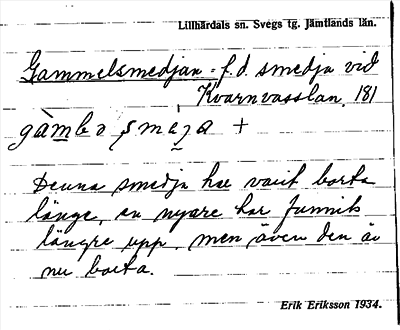 Lillhärdals sn. Svegs tg. Jämtlands län.
Gammelsmedjan = f.d. smedja vid
Kvarnvasslan. 181
+
Denna smedja har varit borta
länge, en nyare har funnits
längre upp, men även den är
nu borta.
Erik Eriksson 1934.